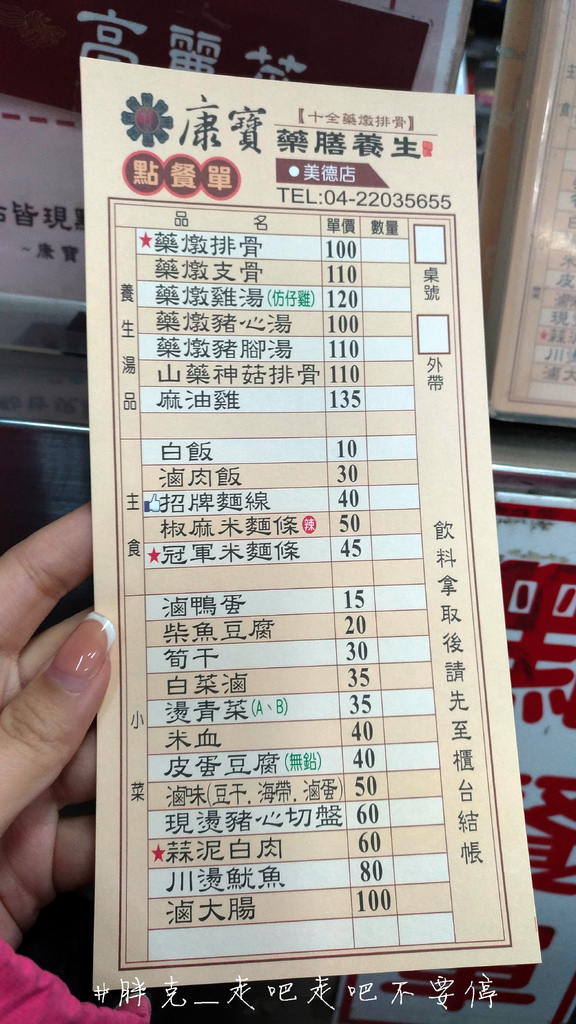 高麗菜
康寶
【十全藥燉排骨】
藥膳養生
點餐單
美德店
TEL:04-22035655
品名 單價 數量
養生湯品
★藥燉排骨 100
藥燉支骨 110
藥燉雞湯(仿仔雞) 120
藥燉豬心湯 100
藥燉豬腳湯 110
山藥神菇排骨 110
麻油雞 135
主食
白飯 10
滷肉飯 30
招牌麵線 40
椒麻米麵條 辣 50
★冠軍米麵條 45
小菜
滷鴨蛋 15
柴魚豆腐 20
筍干 30
白菜滷 35
燙青菜(A、B) 35
米血 40
皮蛋豆腐(無鉛) 40
滷味(豆干.海帶.滷蛋) 50
現燙豬心切盤 60
★蒜泥白肉 60
川燙魷魚 80
滷大腸 100
桌號
外帶
飲料拿取後請先至櫃台結帳
皆現點
~康寶
點餐單
#胖克_走吧走吧不要停